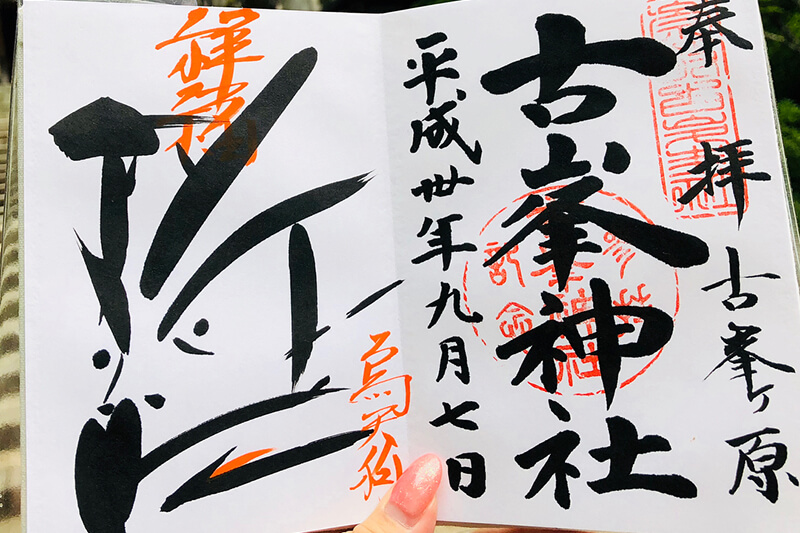 奉拝 古峯ヶ原
古峯神社
平成卅年九月七日
烏天狗